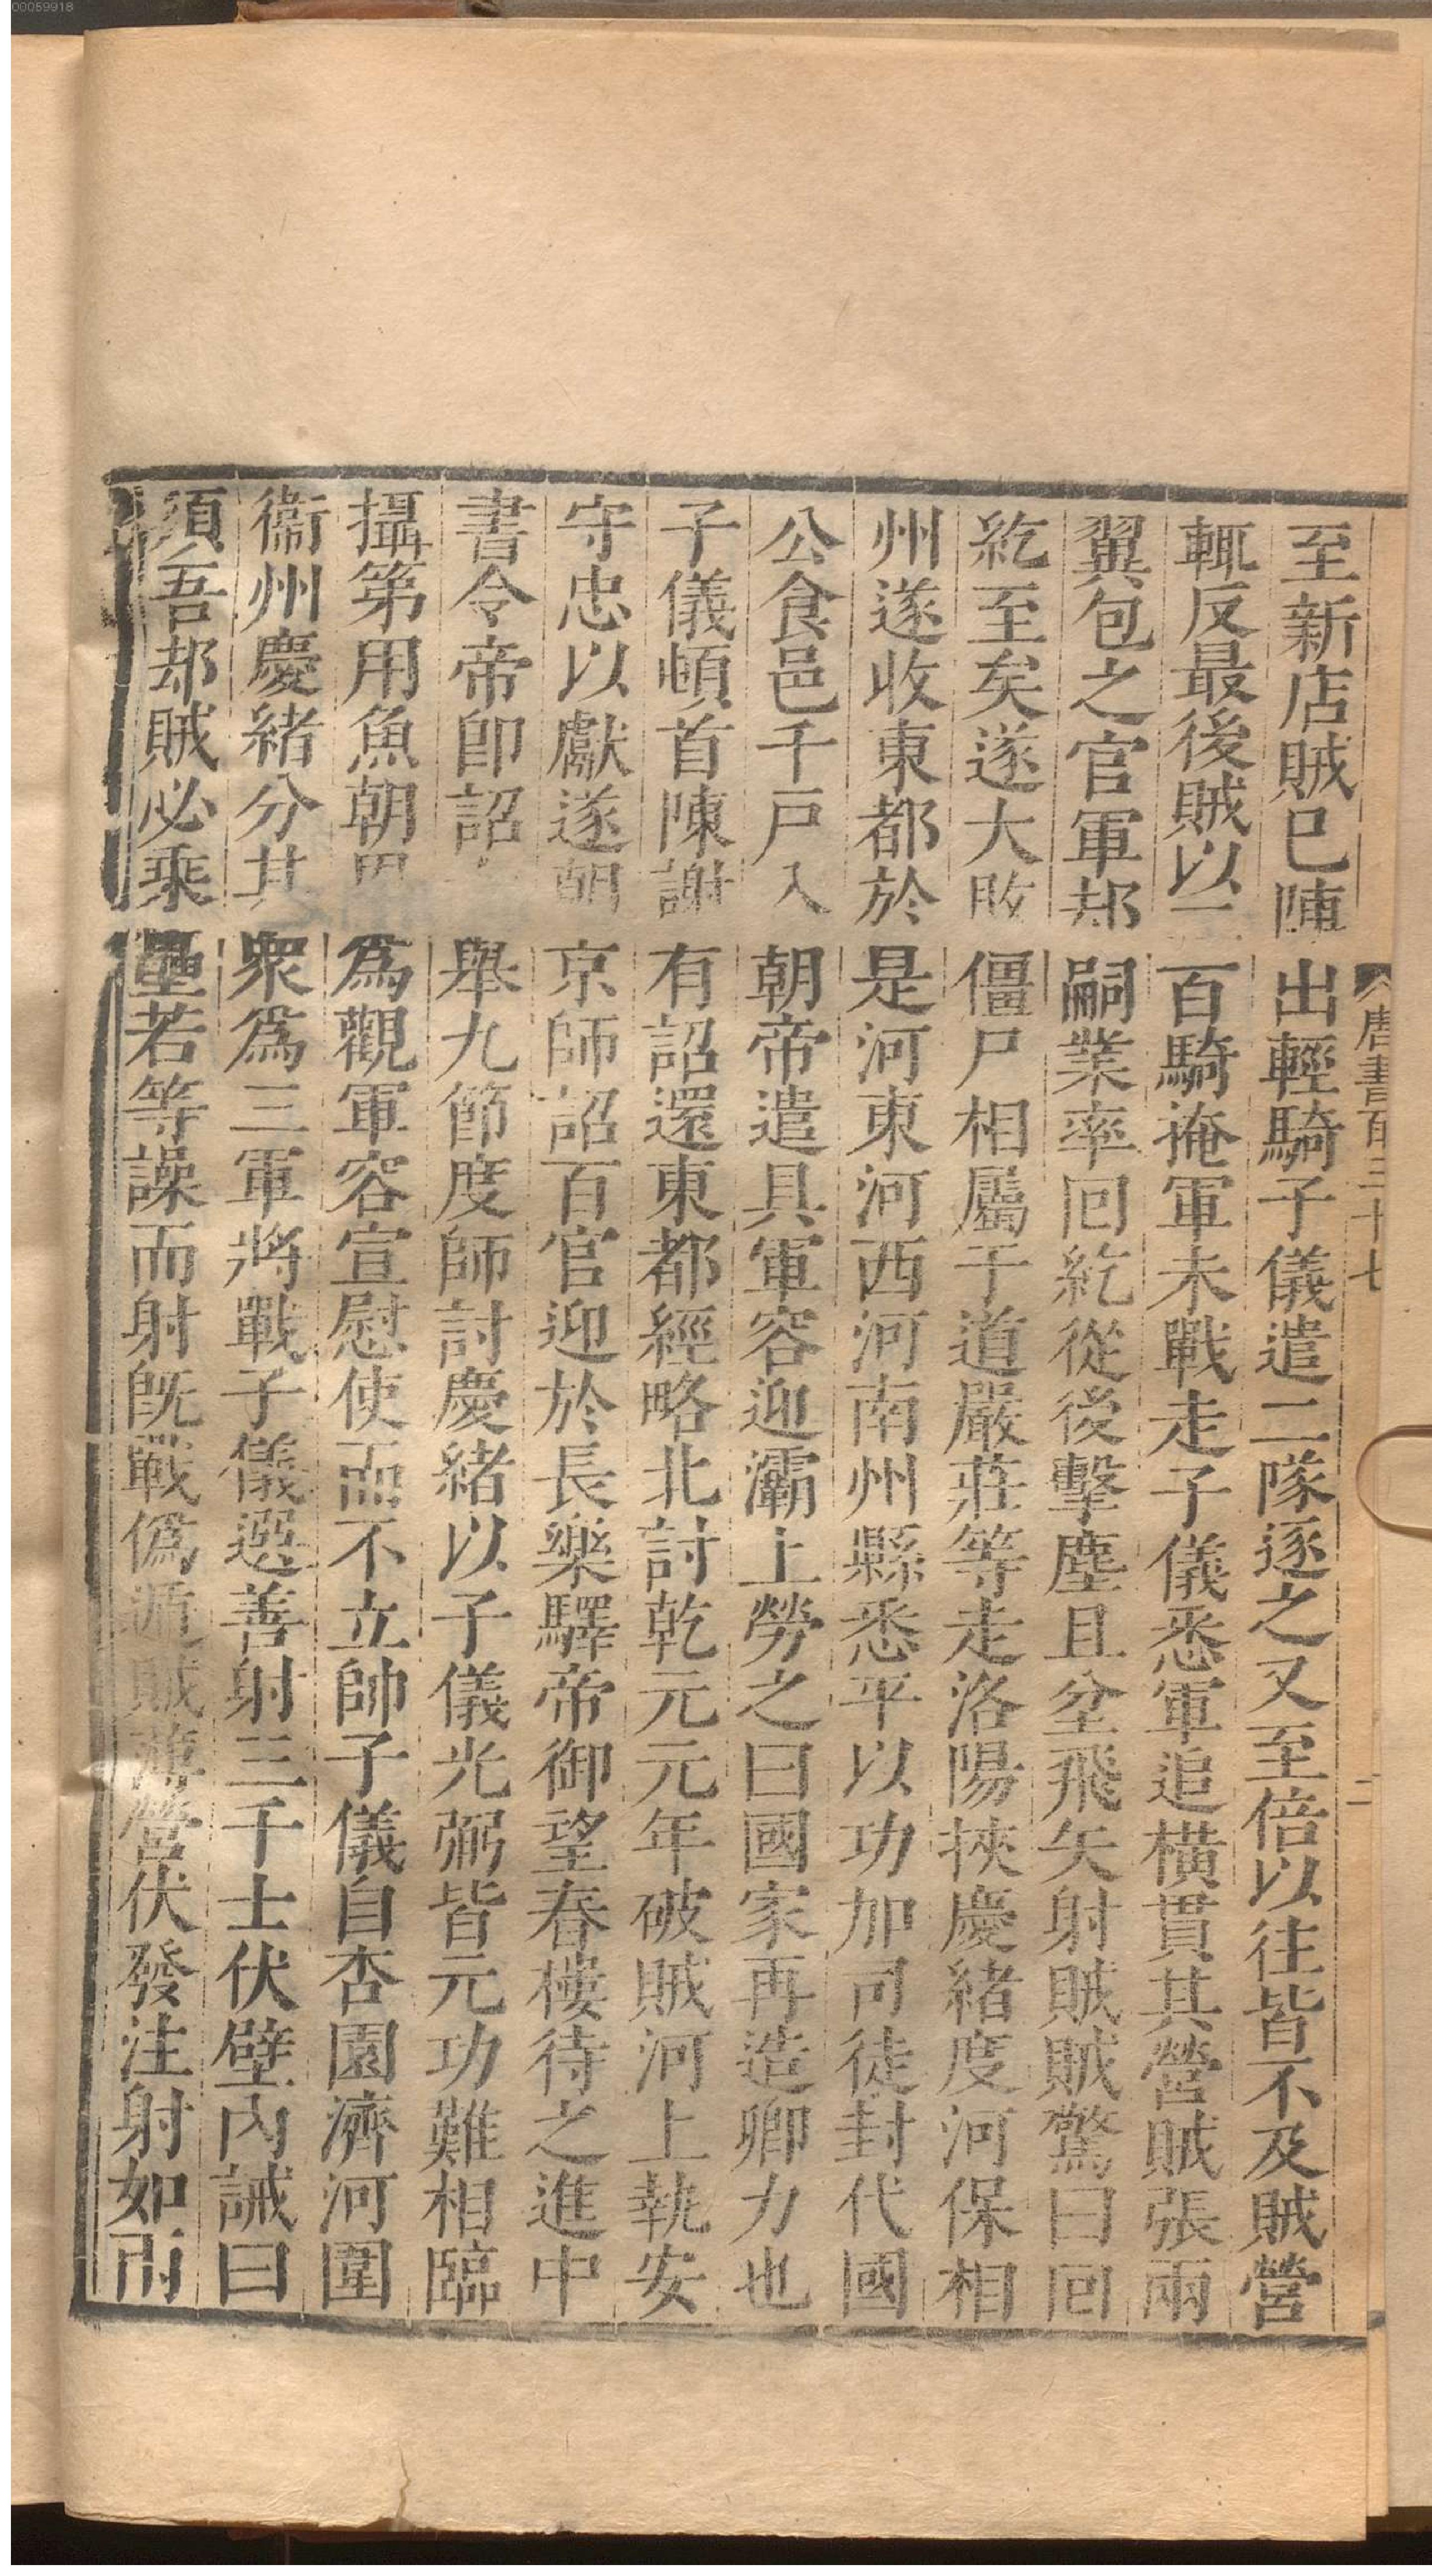 00059918
唐書百三十七
二
至新店賊已陣出輕騎子儀遣二隊逐之又至倍以往皆不及賊營
輒反最後賊以二百騎掩軍未戰走子儀悉軍追橫貫其營賊張兩
翼包之官軍却嗣業率回紇從後擊塵且坌飛矢射賊賊驚曰回
紇至矣遂大敗僵尸相屬于道嚴莊等走洛陽挾慶緒度河保相
州遂收東都於是河東河西河南州縣悉平以功加司徒封代國
公食邑千戶入朝帝遣具軍容迎灞上勞之曰國家再造卿力也
子儀頓首陳謝有詔還東都經略北討乾元元年破賊河上執安
守忠以獻遂朝京師詔百官迎於長樂驛帝御望春樓待之進中
書令帝即詔舉九節度師討慶緒以子儀光弼皆元功難相臨
攝第用魚朝恩為觀軍容宣慰使而不立帥子儀自杏園濟河圍
衞州慶緒分其衆為三軍將戰子儀選善射三千士伏壁內誡曰
須吾却賊必乘壘若等譟而射既戰偽遁賊薄營伏發注射如雨